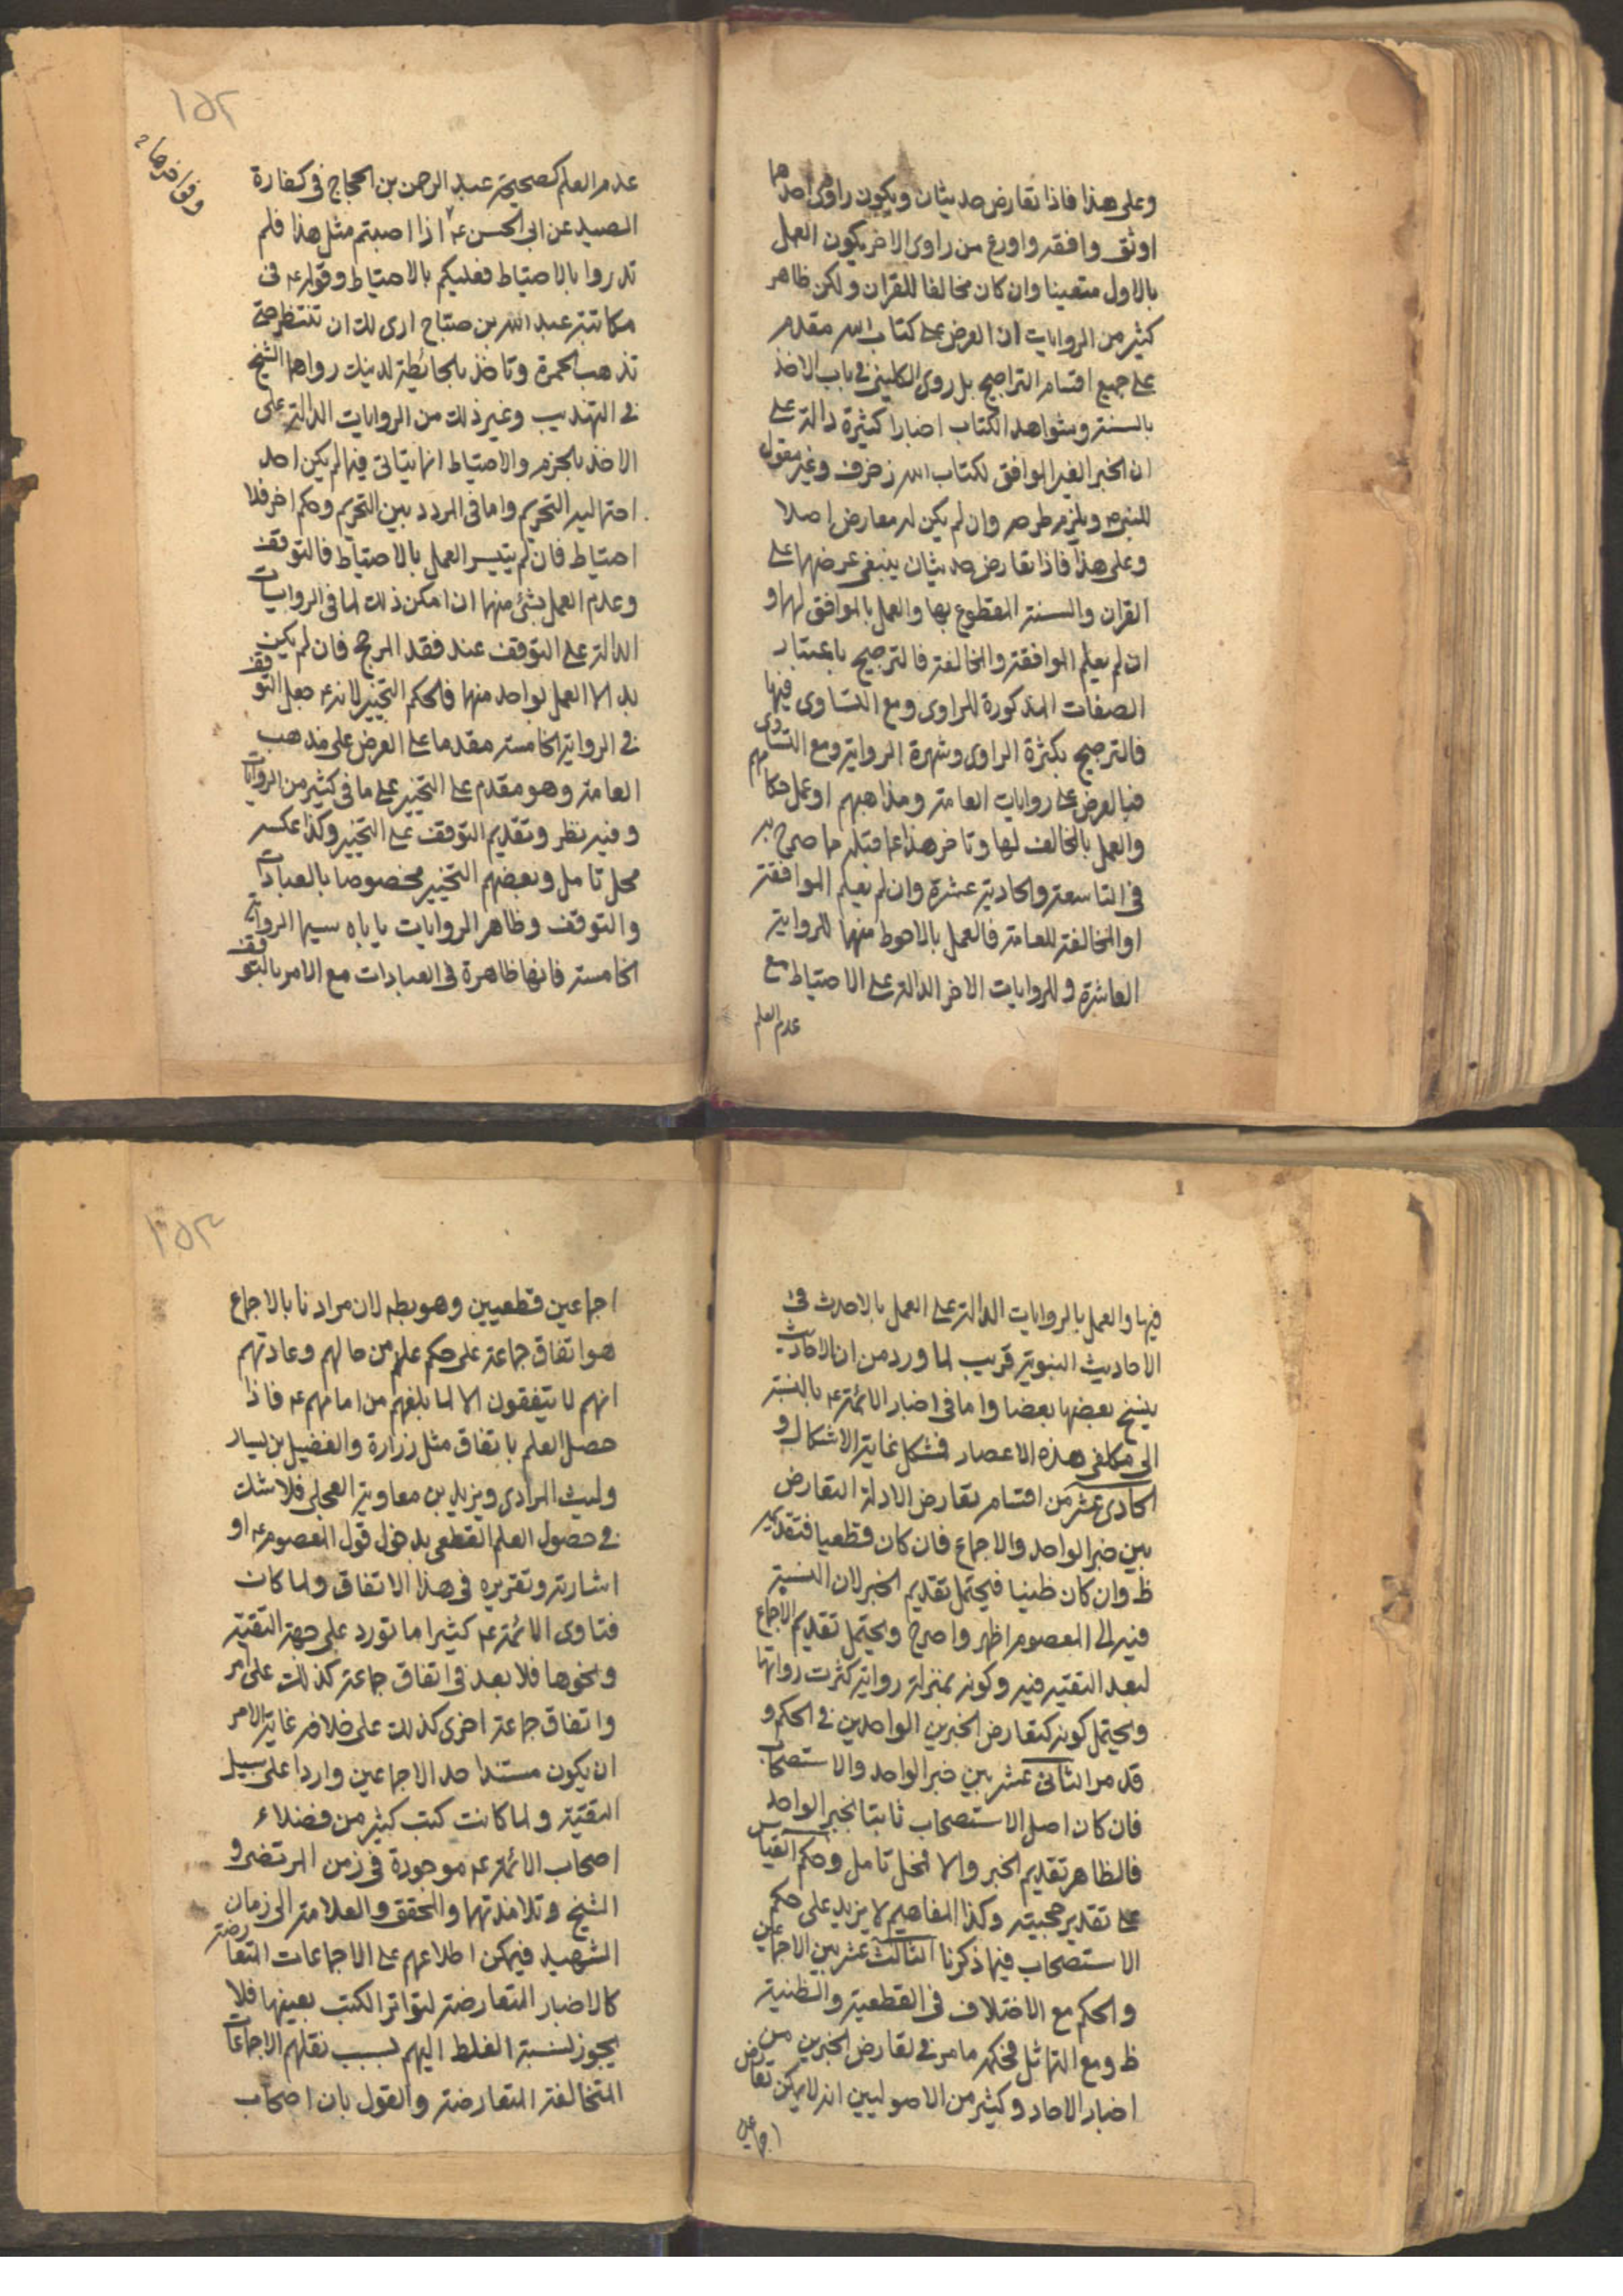 وعلى هذا فاذا تعارض حديثان ويكون راوى احدهما
اوثق وافقه واورع من راوى الاخر يكون العمل
بالاول متعينا وان كان مخالفا للقران ولكن ظاهر
كثير من الروايات ان العرض على كتاب الله مقدم
على جميع اقسام التراجيح بل روى الكلينى فى باب الاخذ
بالسنة وشواهد الكتاب اخبارا كثيرة دالة على
ان الخبر الغير الموافق لكتاب الله زخرف وغير مقول
للنبى ص ويلزم طرحه وان لم يكن له معارض اصلا
وعلى هذا فاذا تعارض حديثان ينبغى عرضهما على
القران والسنة المقطوع بها والعمل بالموافق لهما و
ان لم يعلم الموافقة والمخالفة فالترجيح باعتبار
الصفات المذكورة للراوى ومع التساوى فيها
فالترجيح بكثرة الراوى وشهرة الرواية ومع التساوى
فبالعرض على روايات العامة ومذاهبهم او عمل حكامهم
والعمل بالمخالف لها وتاخر هذا عما قبله مما صرح به
فى التاسعة والحادية عشرة وان لم يعلم الموافقة
او المخالفة للعامة فالعمل بالاحوط منهما للرواية
العاشرة وللروايات الاخر الدالة على الاحتياط مع
عدم العلم
١٥٢
عدم العلم كصحيحة عبد الرحمن بن الحجاج فى كفارة
الصيد عن ابى الحسن ع اذا اصبتم مثل هذا فلم
تدروا بالاحتياط فعليكم بالاحتياط وقوله ع فى
مكاتبة عبد الله بن صباح ارى لك ان تنتظر حتى
تذهب الحمرة وتاخذ بالحائطة لدينك رواهما الشيخ
فى التهذيب وغير ذلك من الروايات الدالة على
الاخذ بالجزم والاحتياط انما يتاتى فيما لم يكن احد
احتماليه التحريم واما فى المردد بين التحريم وحكم اخر فلا
احتياط فان لم يتيسر العمل بالاحتياط فالتوقف
وعدم العمل بشئ منهما ان امكن ذلك لما فى الروايات
الدالة على التوقف عند فقد المرجح فان لم يكن
بد الا العمل بواحد منهما فالحكم التخيير لانه ع جعل التوقف
فى الرواية الخامسة مقدما على العرض على مذهب
العامة وهو مقدم على التخيير على ما فى كثير من الروايات
وفيه نظر وتقديم التوقف على التخيير وكذا عكسه
محل تامل وبعضهم التخيير مخصوصا بالعبادات
والتوقف وظاهر الروايات ياباه سيما الرواية
الخامسة فانها ظاهرة فى العبادات مع الامر بالتوقف
فيها والعمل بالروايات الدالة على العمل بالاحدث فى
الاحاديث النبوية قريب لما ورد من ان الاحاديث
ينسخ بعضها بعضا واما فى اخبار الائمة ع بالنسبة
الى مكلفى هذه الاعصار فمشكل غاية الاشكال و
الحادى عشر من اقسام تعارض الادلة التعارض
بين خبر الواحد والاجماع فان كان قطعيا فتقديمه
ظ وان كان ظنيا فيحتمل تقديم الخبر لان النسبة
فيه الى المعصوم اظهر واصرح ويحتمل تقديم الاجماع
لبعد التقية فيه وكونه بمنزلة رواية كثرت رواتها
ويحتمل كونه كتعارض الخبرين الواحدين فى الحكم و
قد مر الثانى عشر بين خبر الواحد والاستصحاب
فان كان اصل الاستصحاب ثابتا بخبر الواحد
فالظاهر تقديم الخبر والا فمحل تامل وحكم القياس
على تقدير حجيته وكذا المفاهيم لا يزيد على حكم
الاستصحاب فيما ذكرنا الثالث عشر بين الاجماعين
والحكم مع الاختلاف فى القطعية والظنية
ظ ومع التماثل فحكمه ما مر فى تعارض الخبرين من
اخبار الاحاد وكثير من الاصوليين انه لا يمكن تعارض
اجماعين
١٥٣
اجماعين قطعيين وهو بط لان مرادنا بالاجماع
هو اتفاق جماعة على حكم علم من حالهم وعادتهم
انهم لا يتفقون الا لما بلغهم من امامهم ع فاذا
حصل العلم باتفاق مثل زرارة والفضيل بن يسار
وليث المرادى ويزيد بن معاوية العجلى فلا شك
فى حصول العلم القطعى بدخول قول المعصوم ع او
اشارته وتقريره فى هذا الاتفاق ولما كان
فتاوى الائمة ع كثيرا ما تورد على جهة التقية
ونحوها فلا بعد فى اتفاق جماعة كذلك على امر
واتفاق جماعة اخرى كذلك على خلافه غاية الامر
ان يكون مستند احد الاجماعين واردا على سبيل
التقية ولما كانت كتب كثير من فضلاء
اصحاب الائمة ع موجودة فى زمن المرتضى و
الشيخ وتلامذتهما والمحقق والعلامة الى زمان
الشهيد فيمكن اطلاعهم على الاجماعات المتعارضة
كالاخبار المتعارضة لتواتر الكتب بعينها فلا
يجوز نسبة الغلط اليهم بسبب نقلهم الاجماعات
المتخالفة المتعارضة والقول بان اصحاب